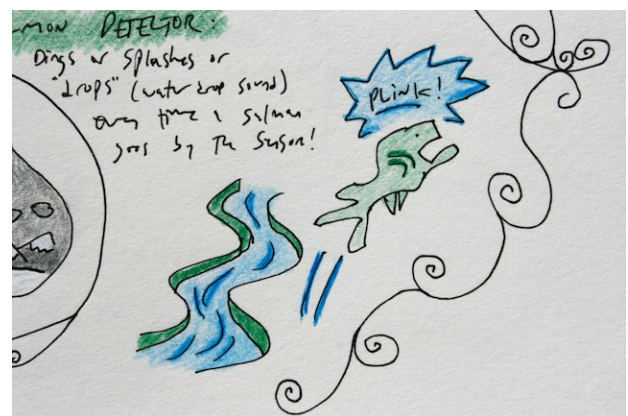 MON DETECTOR:
Dings or splashes or
"drops" (water drop sound)
every time a salmon
goes by the sensor!
PLINK!